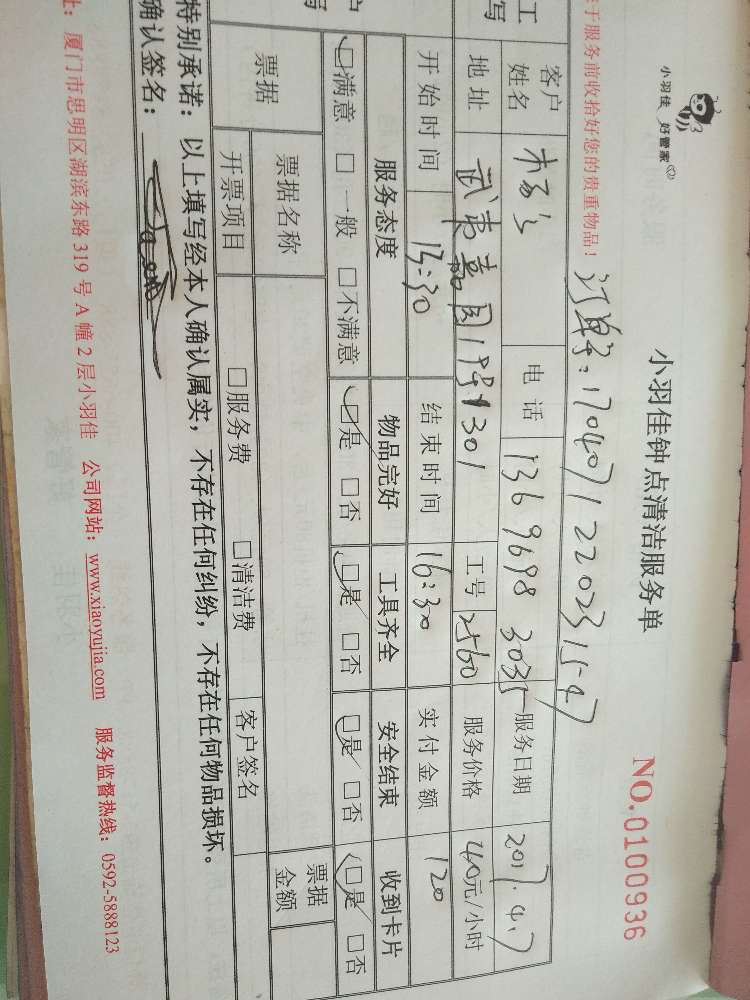 小羽佳 好管家
小羽佳钟点清洁服务单
NO.0100936
于服务前收拾好您的贵重物品!
订单号:1704071220231547
客户姓名 电话 136 9698 3035 服务日期 2017.4.7
地址 武夷嘉园 301 工号 2560 服务价格 40元/小时
开始时间 13:30 结束时间 16:30 实付金额 120
服务态度 物品完好 工具齐全 安全结束 收到卡片
□满意 □一般 □不满意 □是 □否 □是 □否 □是 □否 □是 □否
票据 票据名称 票据金额
开票项目 □服务费 □清洁费 客户签名
特别承诺:以上填写经本人确认属实,不存在任何纠纷,不存在任何物品损坏。
确认签名:
址:厦门市思明区湖滨东路319号A幢2层小羽佳 公司网站:www.xiaoyujia.com 服务监督热线:0592-5888123